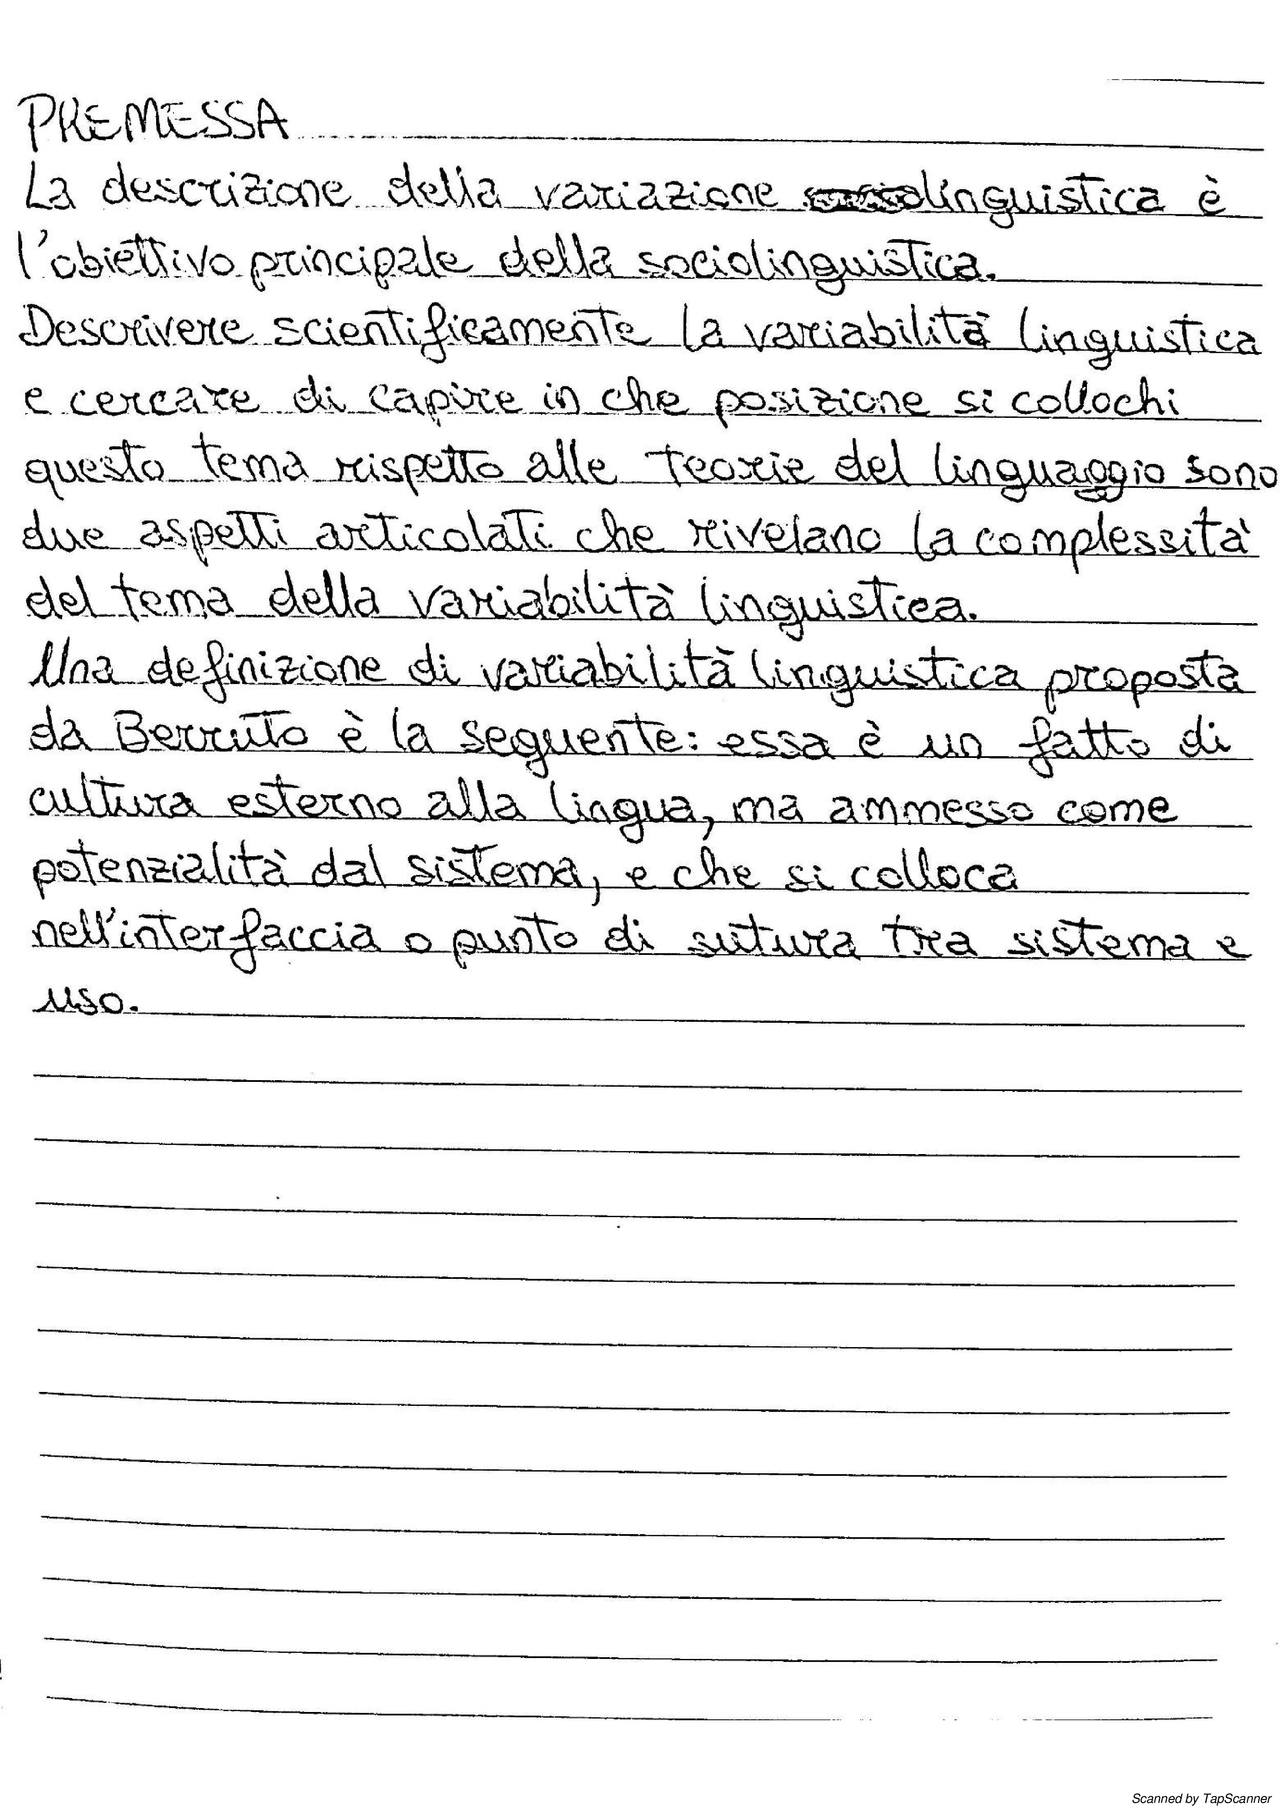 PREMESSA
La descrizione della variazione linguistica è
l'obiettivo principale della sociolinguistica.
Descrivere scientificamente la variabilità linguistica
e cercare di capire in che posizione si collochi
questo tema rispetto alle teorie del linguaggio sono
due aspetti articolati che rivelano la complessità
del tema della variabilità linguistica.
Una definizione di variabilità linguistica proposta
da Berruto è la seguente: essa è un fatto di
cultura esterno alla lingua, ma ammesso come
potenzialità dal sistema, e che si colloca
nell'interfaccia o punto di sutura tra sistema e
uso.
Scanned by TapScanner